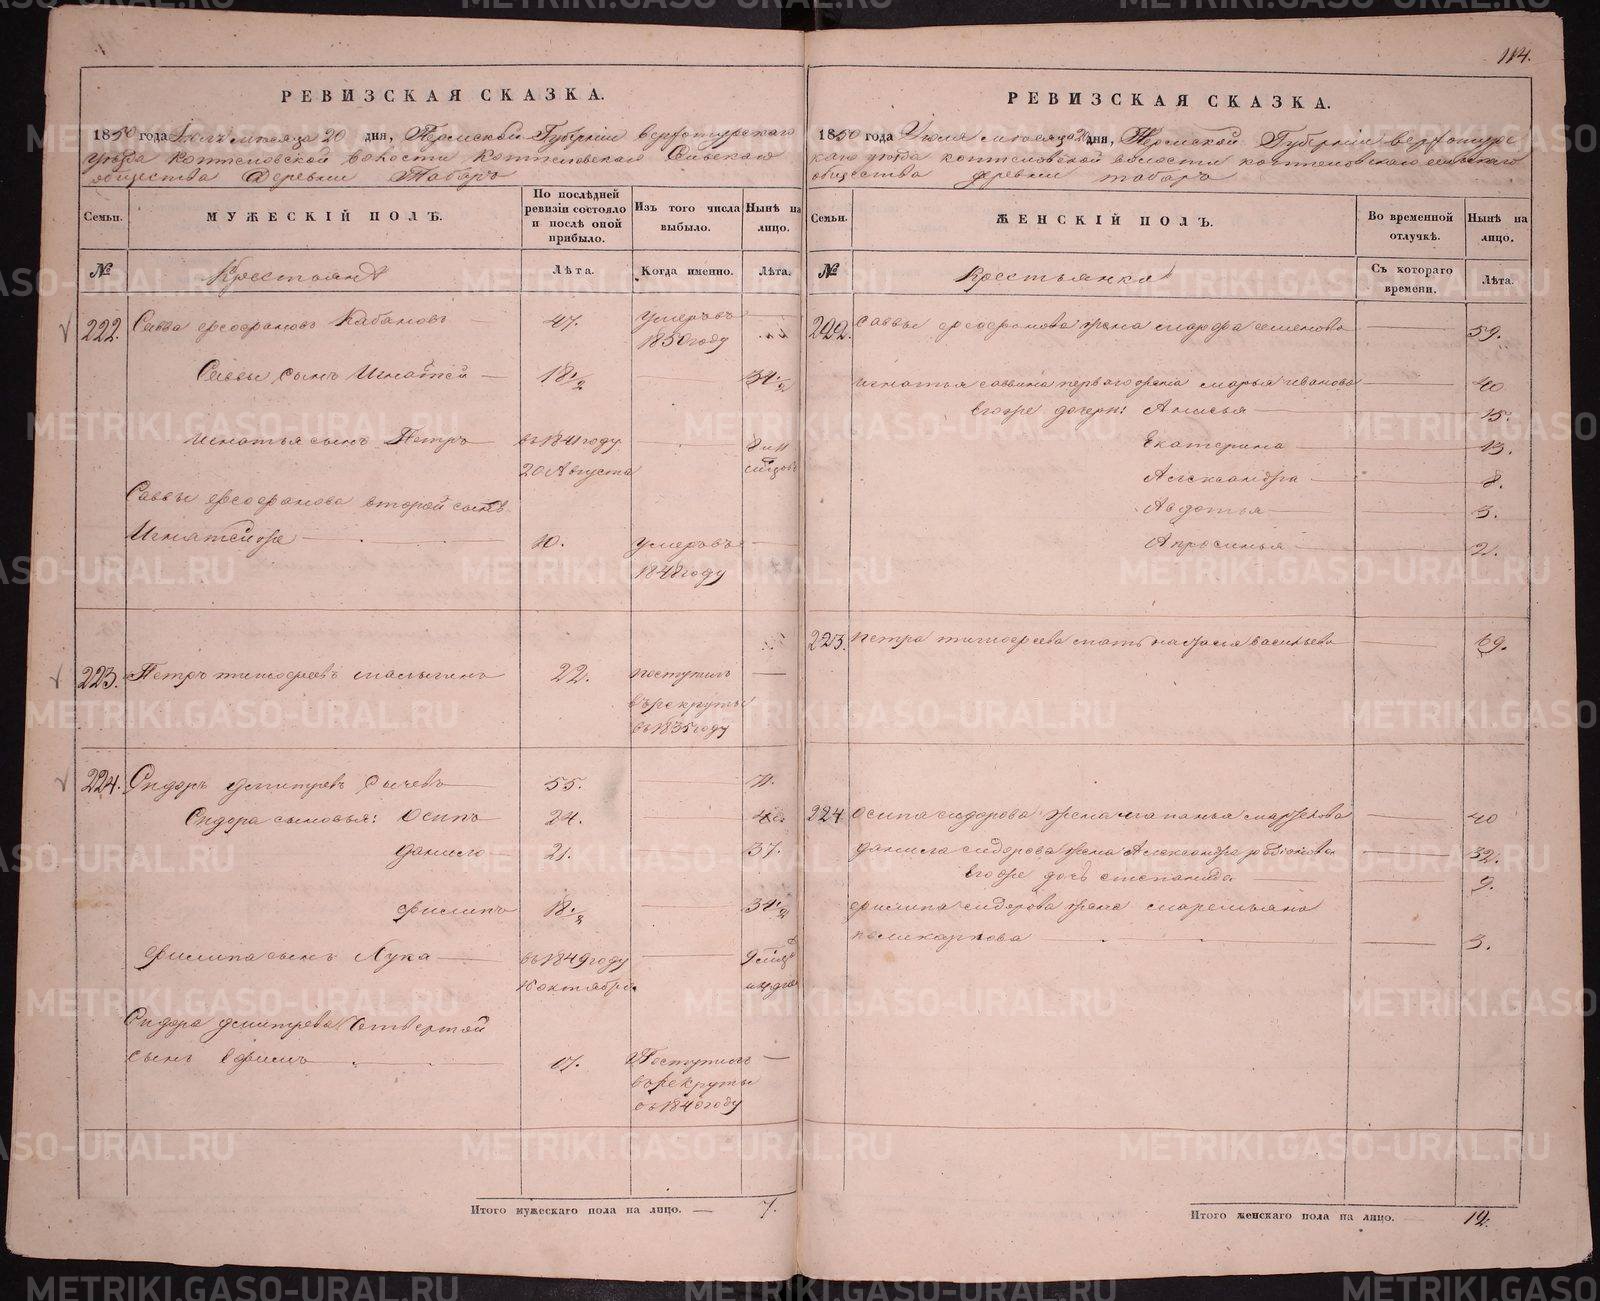 114.
РЕВИЗСКАЯ СКАЗКА.
1850 года Іюля месяца 20 дня, Пермской Губерніи верхотурскаго
уезда коптеловской волости Коптеловскаго Сельскаго
общества Деревни Таборъ
Семьи.
МУЖЕСКІЙ ПОЛЪ.
По последней ревизіи состояло и после оной прибыло.
Изъ того числа выбыло.
Ныне на лицо.
№
Крестьяне
Лета.
Когда именно.
Лета.
222. Савва Феофановъ Кабановъ 47. умеръ въ
1850 году
Саввы сынъ Игнатей 18 1/2 34 1/2
Игнатья сынъ Петръ въ 1841 году 8 и 11
20 Августа
Саввы Феофанова второй сынъ
Игнатей же 10. умеръ въ
1848 году
223. Петръ тимофеевъ малыгинъ 22. поступилъ
въ рекруты
въ 1835 году
224. Сидоръ дмитревъ Сычевъ 55. 71.
Сидора сыновья: Осипъ 24. 40.
данило 21. 37.
филипъ 18 1/2 34 1/2
филипа сынъ Лука въ 1849 году
10 октября.
Сидора дмитрева четвертой
сынъ Ефимъ 17. Поступилъ
в рекруты
въ 1840 году
Итого мужескаго пола на лицо. — 7.
РЕВИЗСКАЯ СКАЗКА.
1850 года Іюля месяца 20 дня, Пермской Губерніи верхотурс
каго уезда коптеловской волости коптеловскаго сельскаго
общества деревни таборъ
Семьи.
ЖЕНСКІЙ ПОЛЪ.
Во временной отлучке.
Ныне на лицо.
№
Крестьянки
Съ котораго времени.
Лета.
222. Саввы феофанова жена марфа семенова 59.
игнатья саввина перваго жена марья иванова 40
его же дочери: Анисья 15.
Екатерина 13.
Александра 8.
Авдотья 3.
Апросинья 2.
223. Петра тимофеева мать настасья васильева 69.
224 Осипа сидорова жена маланья маркелова 40
данила сидорова жена Александра родіонова 32.
его же дочь степанида 9.
филипа сидорова жена маремьяна
поликарпова 3.
Итого женскаго пола на лицо. 12.
METRIKI.GASO-URAL.RU